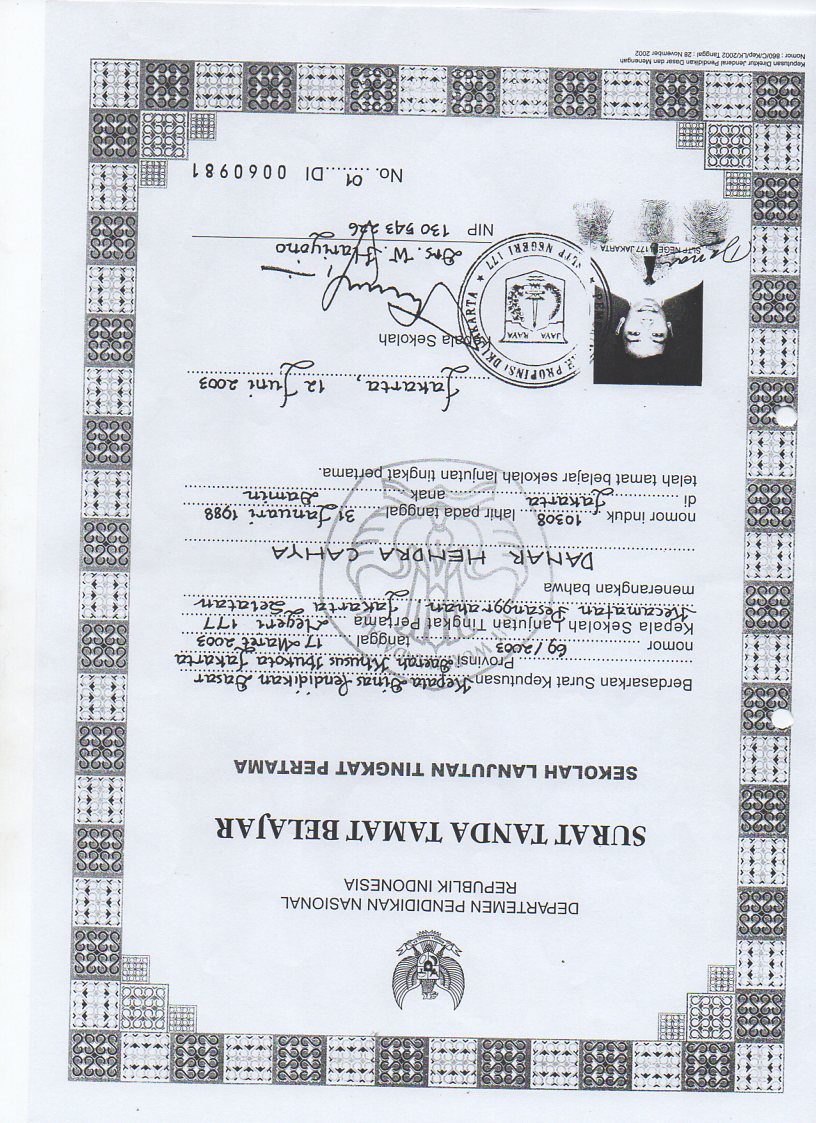 DEPARTEMEN PENDIDIKAN NASIONAL
REPUBLIK INDONESIA
SURAT TANDA TAMAT BELAJAR
SEKOLAH LANJUTAN TINGKAT PERTAMA
Berdasarkan Surat Keputusan Kepala Dinas Pendidikan Dasar
Provinsi Daerah Khusus Ibukota Jakarta
nomor 69/2003 tanggal 17 Maret 2003
Kepala Sekolah Lanjutan Tingkat Pertama Negeri 177
Kecamatan Pesanggrahan, Jakarta Selatan
menerangkan bahwa
DANAR HENDRA CAHYA
nomor induk 10308 lahir pada tanggal 31 Januari 1988
di Jakarta anak Damin
telah tamat belajar sekolah lanjutan tingkat pertama.
Jakarta, 12 Juni 2003
Kepala Sekolah
PROPINSI DKI JAKARTA
JAYA RAYA
SLTP NEGERI 177
Danar
SLTP NEGERI 177 JAKARTA
Drs. W. Hariyono
NIP 130 543 226
No. 01 DI 0060981
Keputusan Direktur Jenderal Pendidikan Dasar dan Menengah
Nomor : 860/C/Kep/LK/2002 Tanggal : 28 November 2002